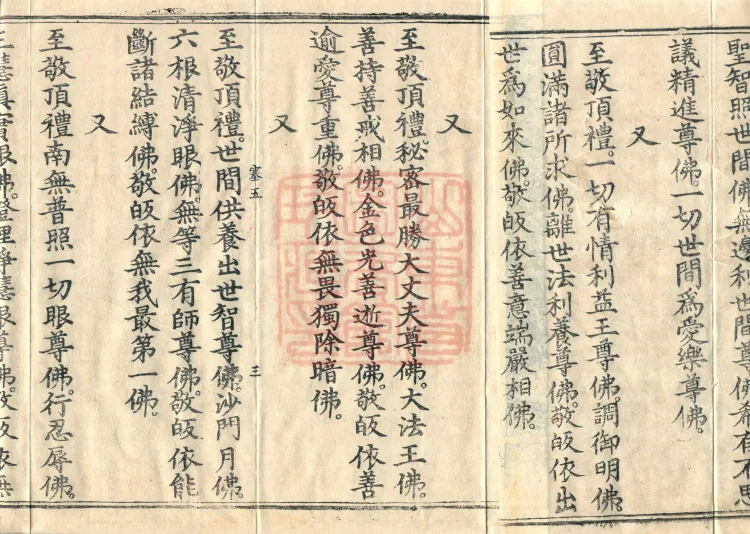 聖智照世間佛。無邊利世間尊佛。希有不思
議精進尊佛。一切世間爲愛樂尊佛。
又
至敬頂禮。一切有情利益王尊佛。調御明佛。
圓滿諸所求佛。離世法利養尊佛。敬皈依出
世爲如來佛。敬皈依善意端嚴相佛。
又
至敬頂禮。秘密最勝大丈夫尊佛。大法王佛。
善持善戒相佛。金色光善逝尊佛。敬皈依善
逾愛尊重佛。敬皈依無畏獨除暗佛。
又
塞五 三
至敬頂禮。世間供養出世智尊佛。沙門月佛。
六根清淨眼佛。無等三有師尊佛。敬皈依能
斷諸結縛佛。敬皈依無我最第一佛。
又
至敬頂禮南無普照一切眼尊佛。行忍辱佛。
慧真實眼佛。證理淨慧眼尊佛。敬皈依無